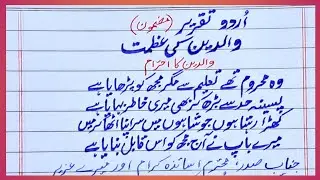 اُردو تقریر (مضمون)
والدین کی عظمت
والدین کا احترام
وہ محروم تھے تعلیم سے مگر مجھ کو پڑھایا ہے
پسینہ حد سے بڑھ کر بھی میری خاطر بہایا ہے
کھڑا رہتا ہوں جو شاہوں میں سر اپنا اٹھا کر میں
میرے باپ نے آج مجھ کو اس قابل بنایا ہے
جناب صدر، محترم اساتذہ کرام اور میرے عزیز